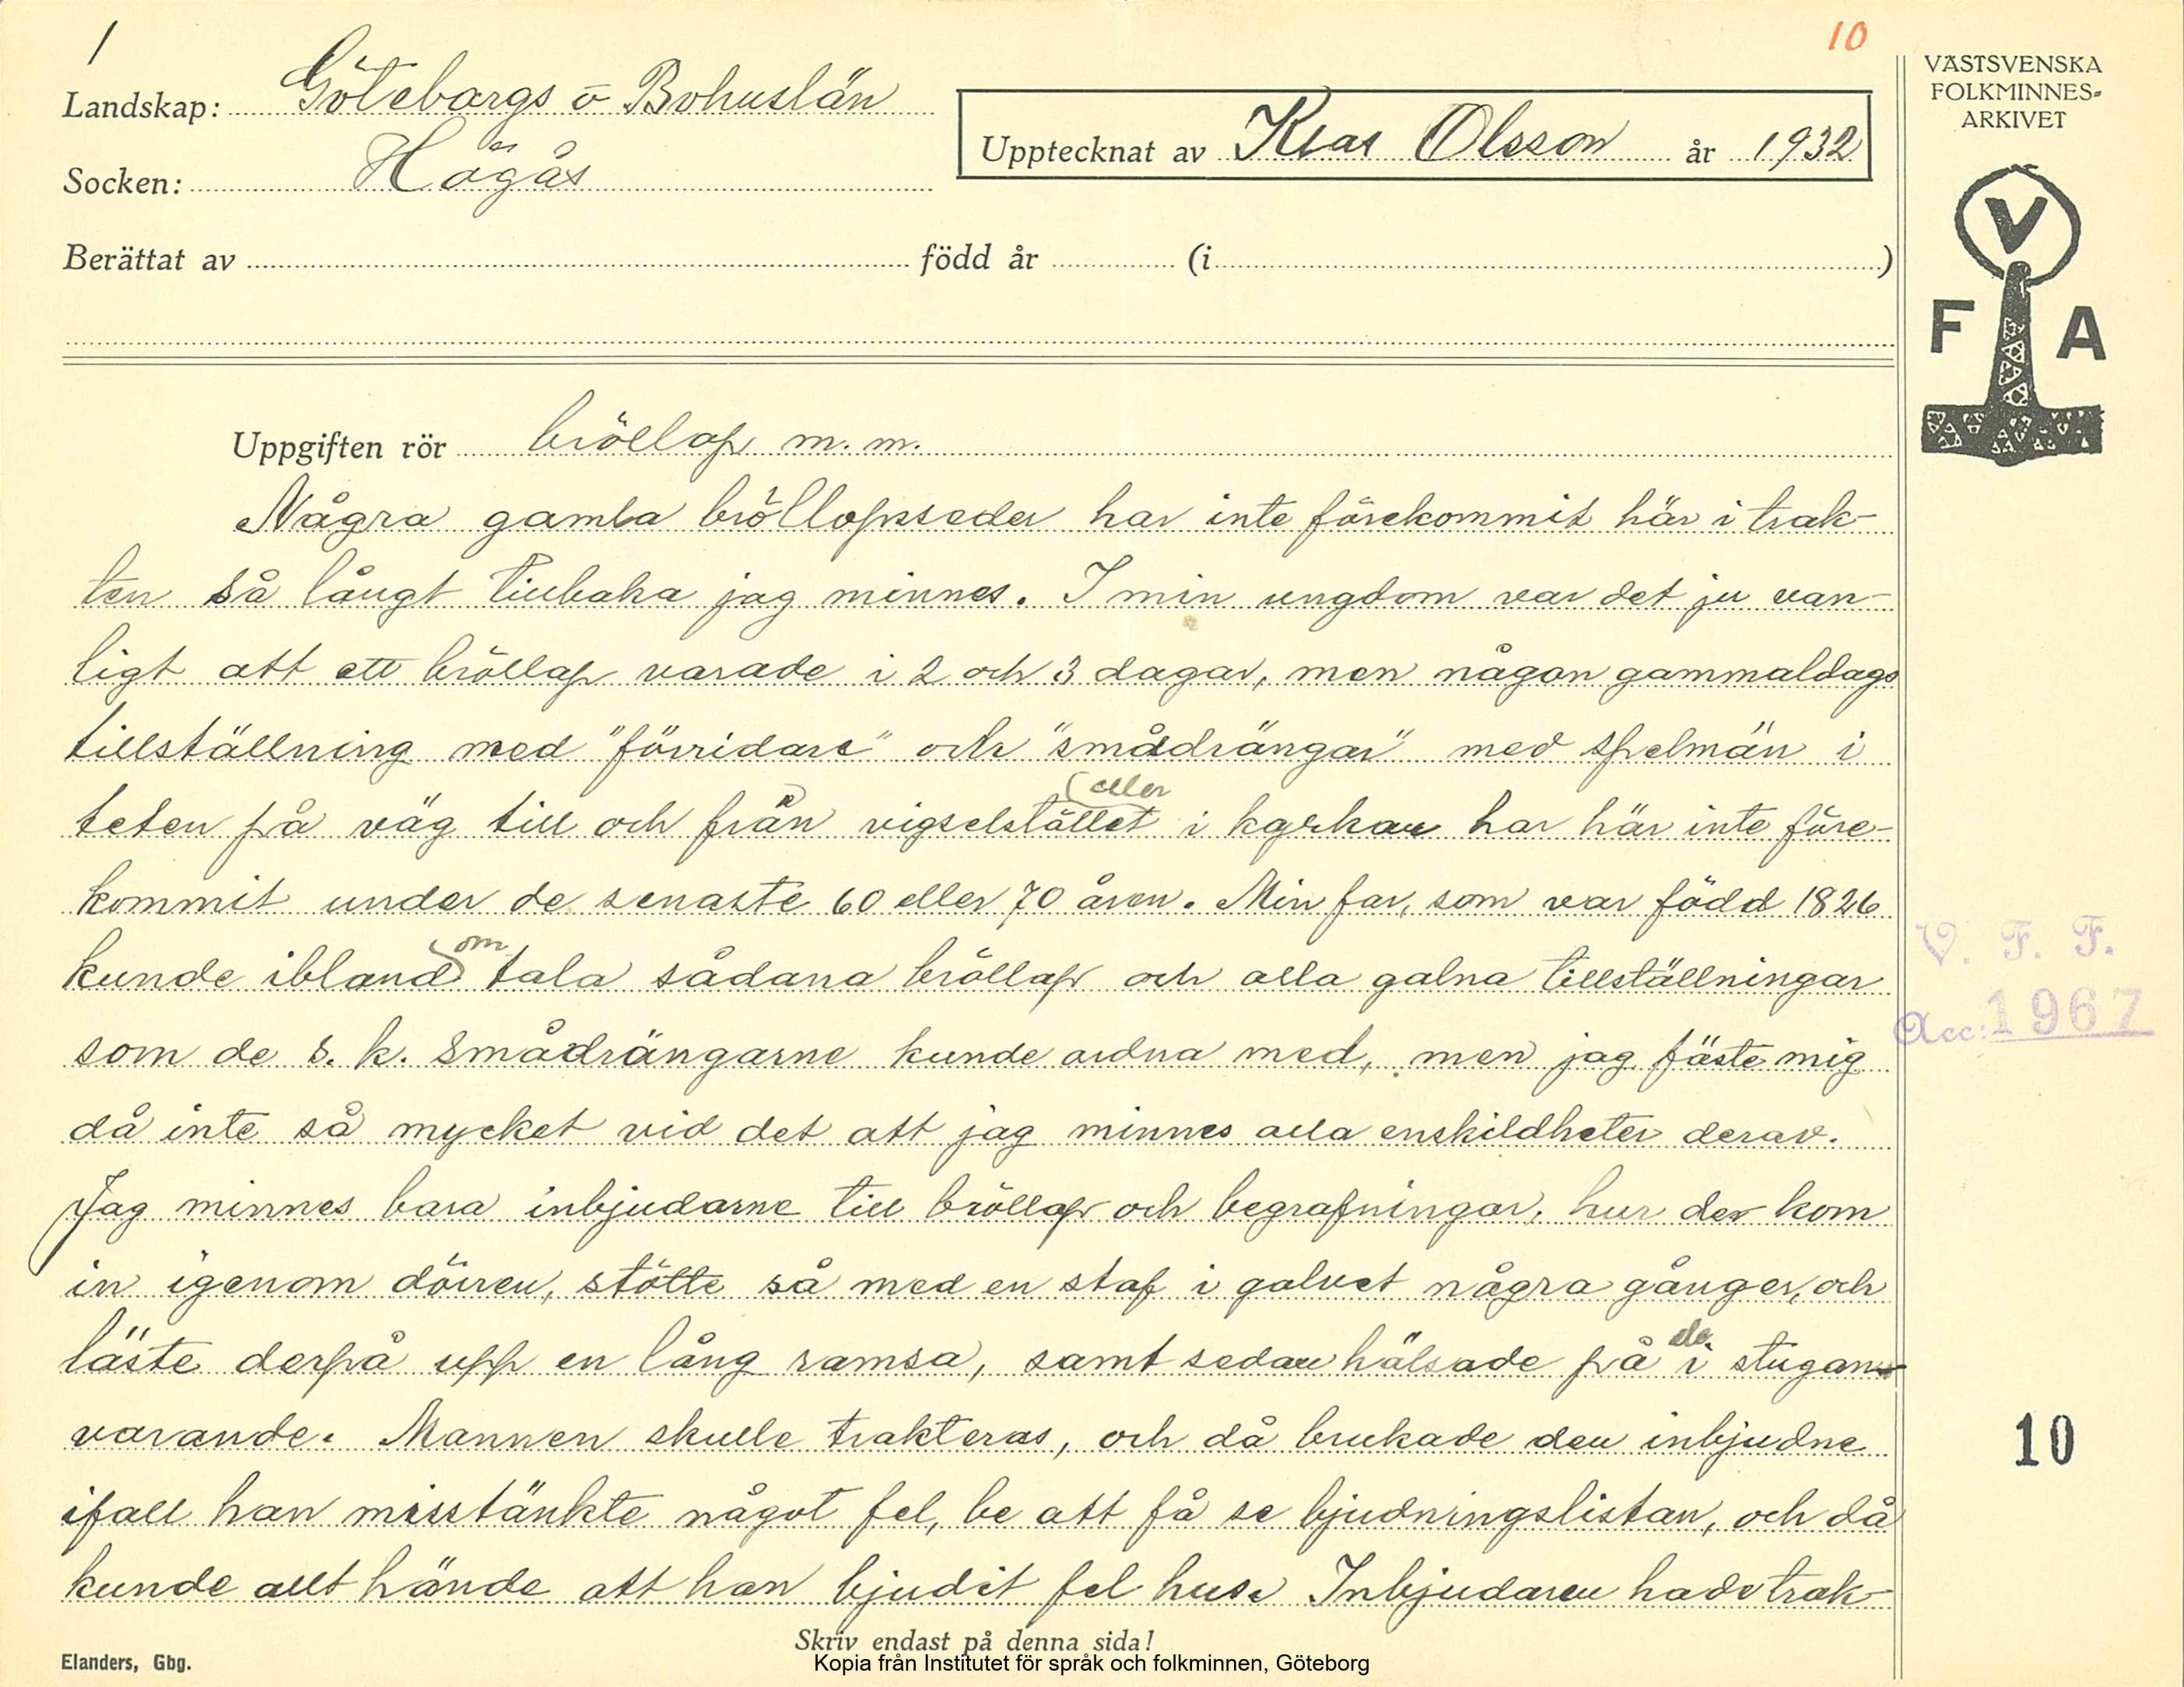 1
10
Landskap: Göteborgs o Bohuslän
Socken: Högås
Upptecknat av Klas Olsson år 1932
VÄSTSVENSKA
FOLKMINNES-
ARKIVET
V
F A
Berättat av född år (i )
Uppgiften rör bröllop m. m.
Några gamla bröllopsseder har inte förekommit här i trak-
ten så långt tillbaka jag minnes. I min ungdom var det ju van-
ligt att ett bröllop varade i 2 och 3 dagar, men någon gammaldags
tillställning med "förridare" och "smådrängar" med spelmän i
teten på väg till och från vigselstället (eller i kyrkan har här inte före-
kommit under de senaste 60 eller 70 åren. Min far, som var född 1826
kunde ibland om tala sådana bröllop och alla galna tillställningar
som de s. k. smådrängarne kunde ordna med, men jag fäste mig
då inte så mycket vid det att jag minnes alla enskildheter derav.
Jag minnes bara inbjudarne till bröllop och begrafningar, hur der kom
in igenom dörren, stötte så med en staf i golvet några gånger, och
läste derpå upp en lång ramsa, samt sedan hälsade på de i stugan
varande. Mannen skulle trakteras, och då brukade den inbjudne
ifall han misstänkte något fel, be att få se bjudningslistan, och då
kunde allt hände att han bjudit fel hus. Inbjudaren hade trak-
V. F. F.
Acc: 1967
10
Skriv endast på denna sida!
Elanders, Gbg.
Kopia från Institutet för språk och folkminnen, Göteborg